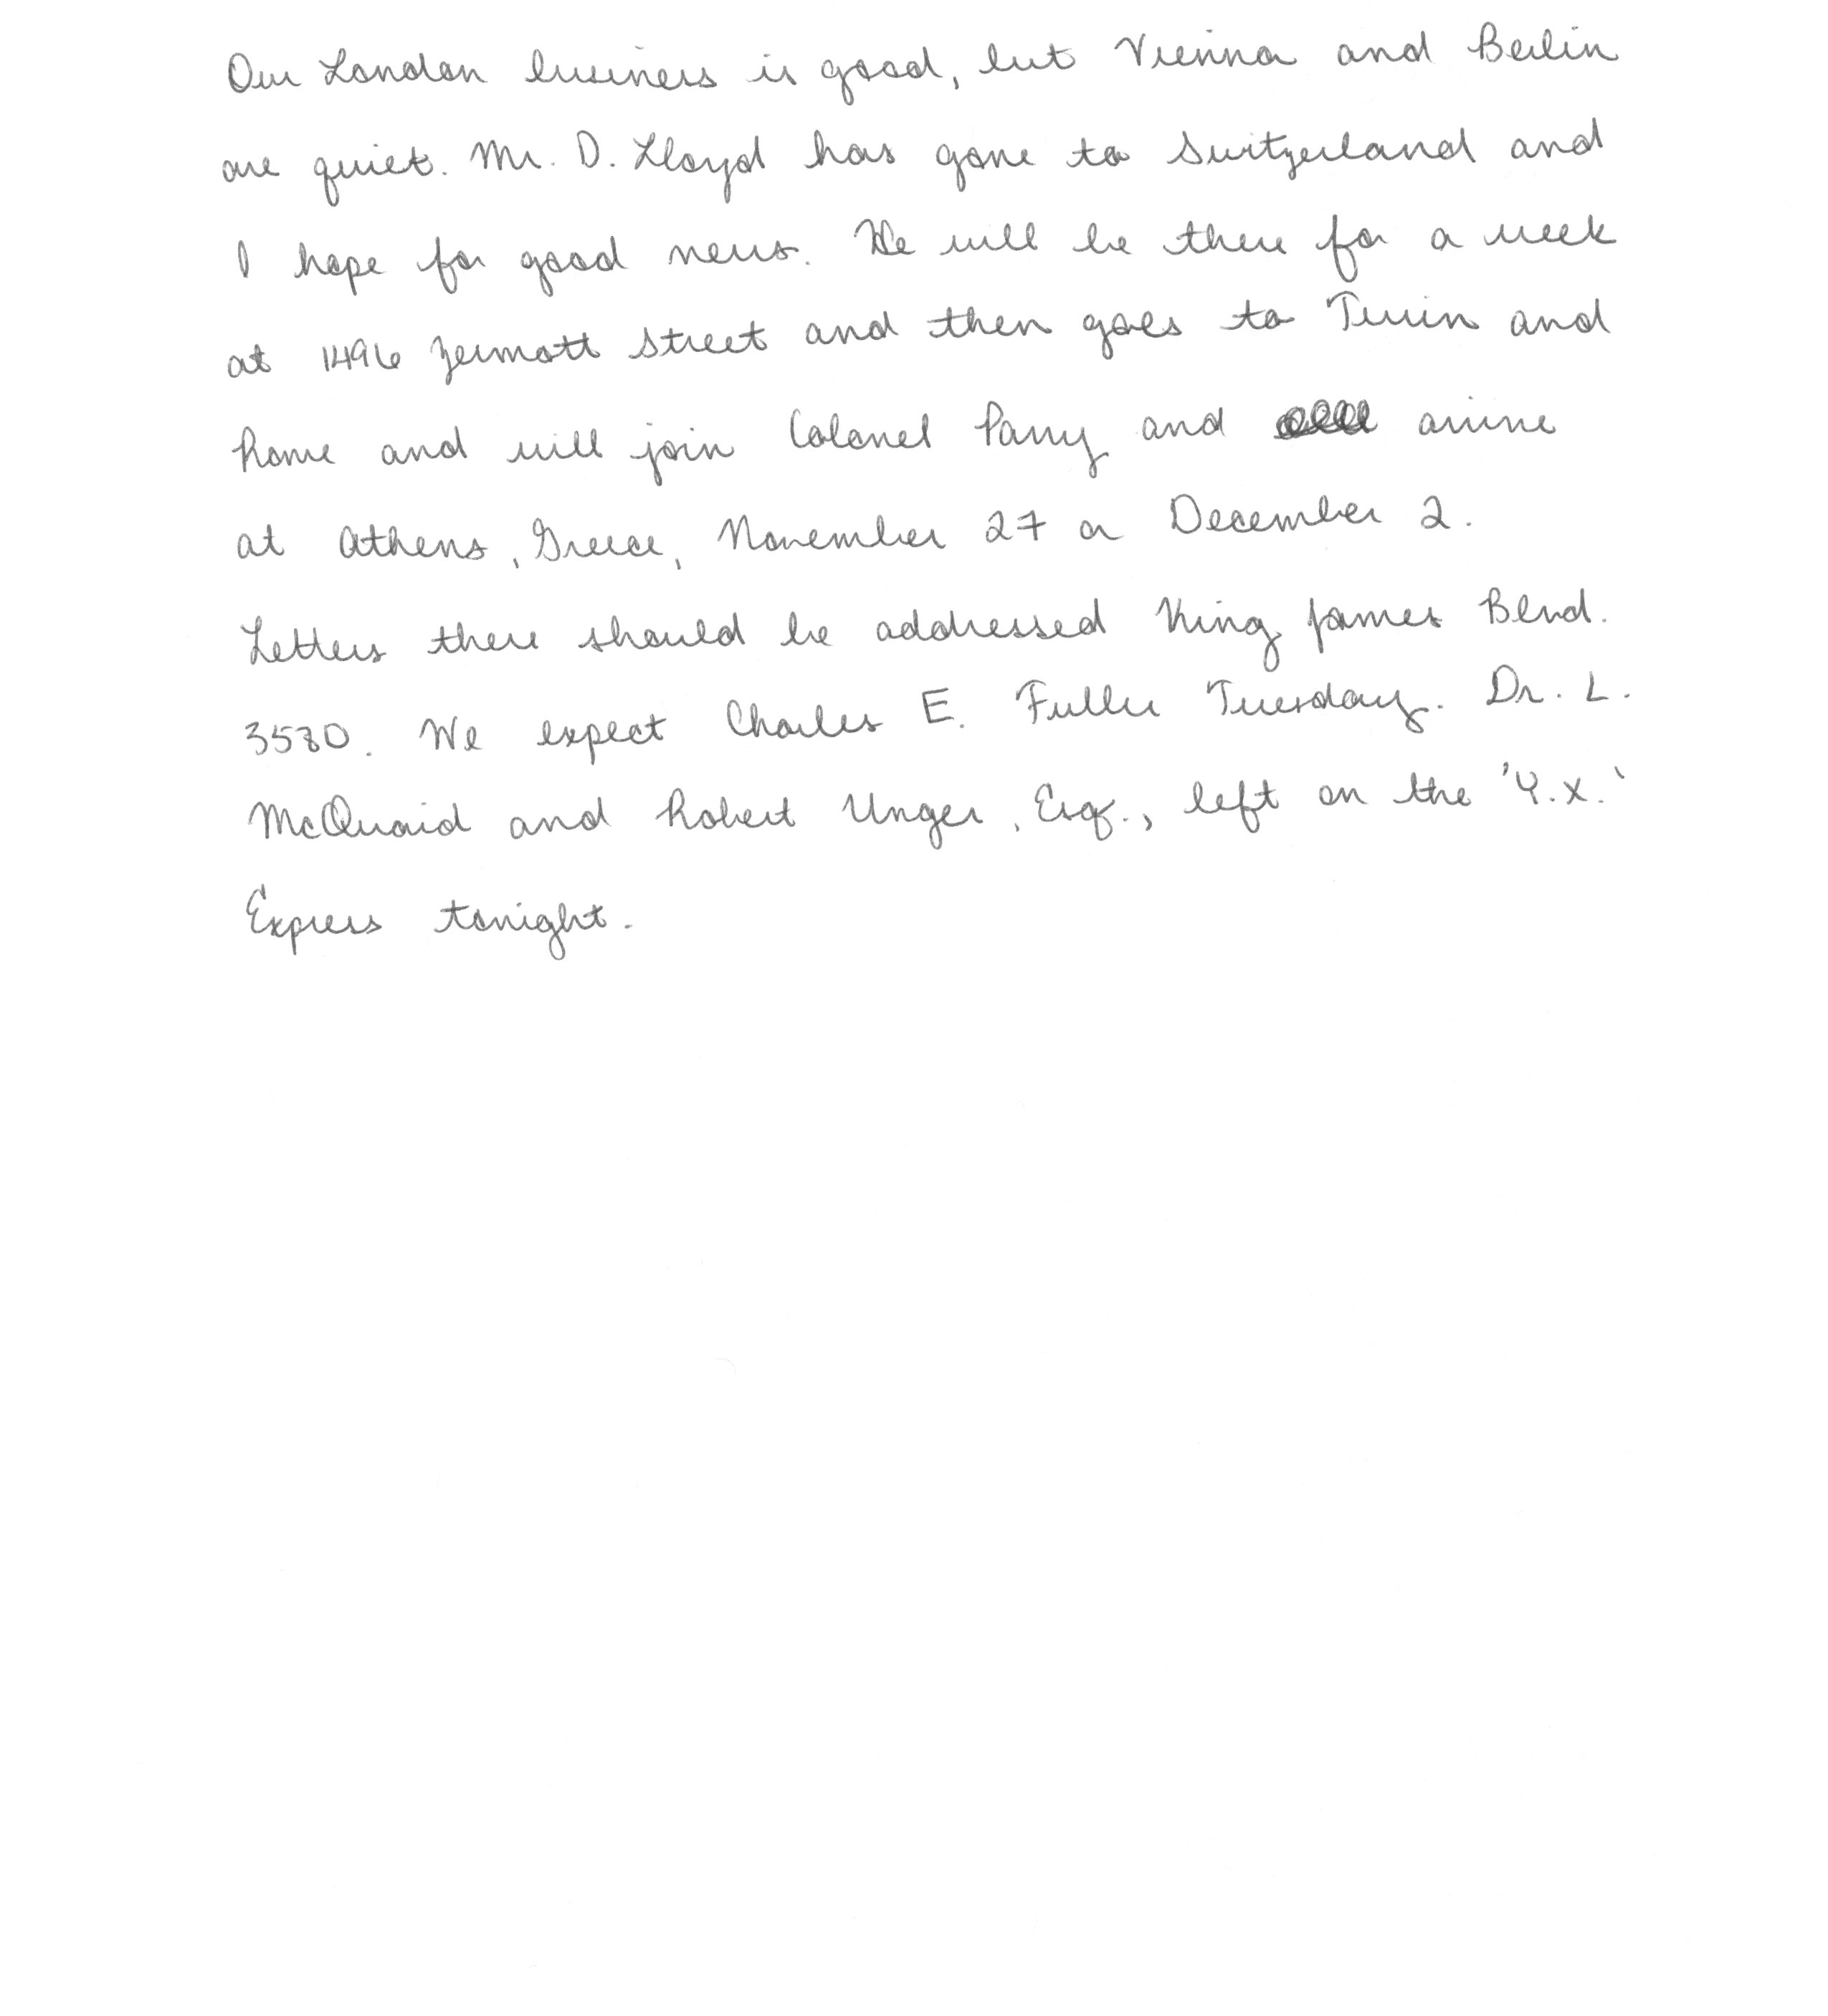 Our London business is good, but Vienna and Berlin
are quiet. Mr. D. Lloyd has gone to Switzerland and
I hope for good news. He will be there for a week
at 1496 Zermott Street and then goes to Turin and
Rome and will join Colonel Parry and arrive
at Athens, Greece, November 27 or December 2.
Letters there should be addressed King James Blvd.
3580. We expect Charles E. Fuller Tuesday. Dr. L.
McQuaid and Robert Unger, Esq., left on the 'Y.X.'
Express tonight.